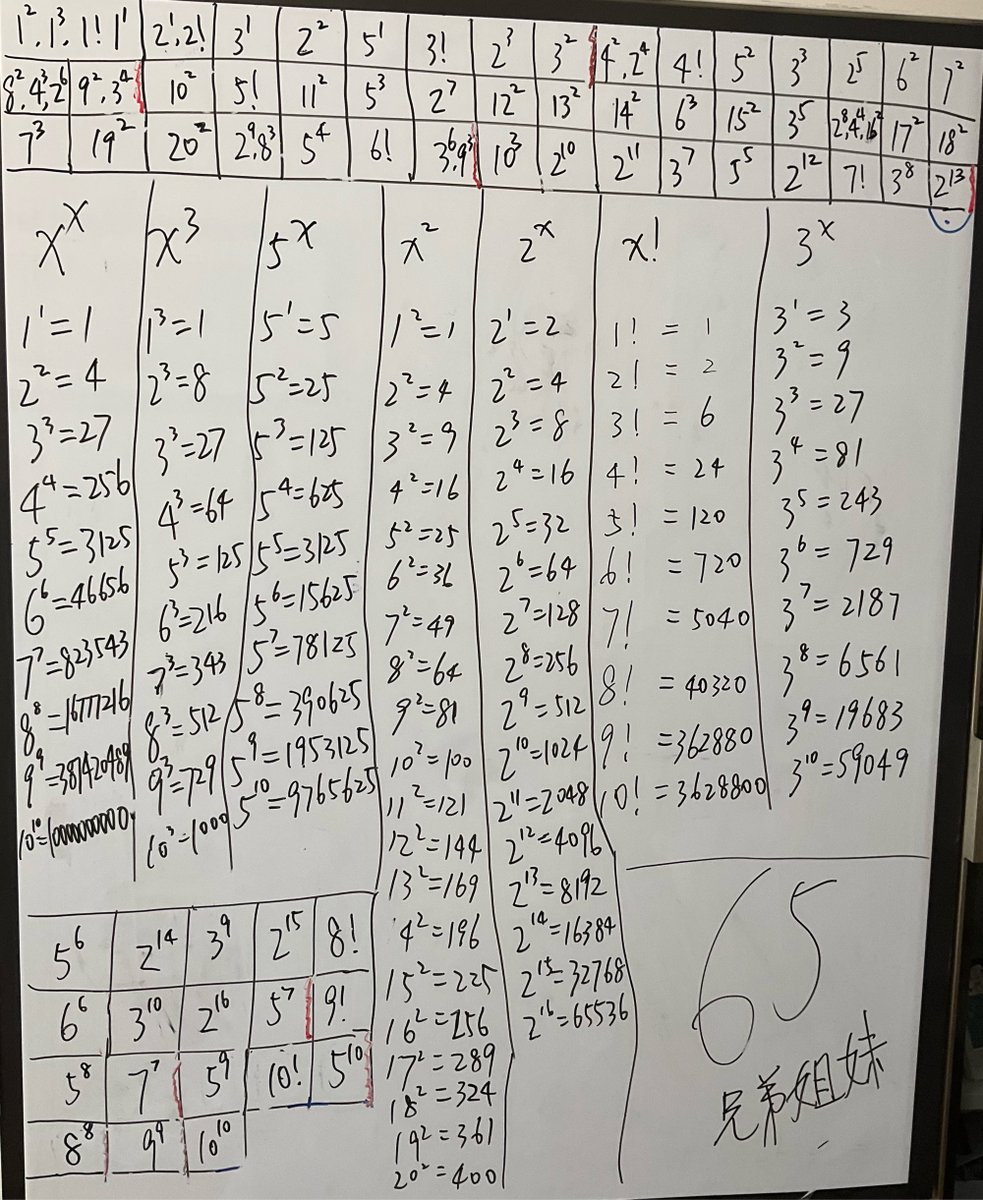 1², 1³, 1! 1¹ 2¹, 2! 3¹ 2² 5¹ 3! 2³ 3² 4², 2⁴ 4! 5² 3³ 2⁵ 6² 7²
8², 4³, 2⁶ 9², 3⁴ 10² 5! 11² 5³ 2⁷ 12² 13² 14² 6³ 15² 3⁵ 2⁸, 4⁴, 16² 17² 18²
7³ 19² 20² 2⁹, 8³ 5⁴ 6! 3⁶, 9³ 10³ 2¹⁰ 2¹¹ 3⁷ 5⁵ 2¹² 7! 3⁸ 2¹³
x^x x³ 5^x x² 2^x x! 3^x
1¹=1
2²=4
3³=27
4⁴=256
5⁵=3125
6⁶=46656
7⁷=823543
8⁸=16777216
9⁹=387420489
10¹⁰=10000000000
1³=1
2³=8
3³=27
4³=64
5³=125
6³=216
7³=343
8³=512
9³=729
10³=1000
5¹=5
5²=25
5³=125
5⁴=625
5⁵=3125
5⁶=15625
5⁷=78125
5⁸=390625
5⁹=1953125
5¹⁰=9765625
1²=1
2²=4
3²=9
4²=16
5²=25
6²=36
7²=49
8²=64
9²=81
10²=100
11²=121
12²=144
13²=169
4²=196
15²=225
16²=256
17²=289
18²=324
19²=361
20²=400
2¹=2
2²=4
2³=8
2⁴=16
2⁵=32
2⁶=64
2⁷=128
2⁸=256
2⁹=512
2¹⁰=1024
2¹¹=2048
2¹²=4096
2¹³=8192
2¹⁴=16384
2¹⁵=32768
2¹⁶=65536
1! = 1
2! = 2
3! = 6
4! = 24
5! = 120
6! = 720
7! = 5040
8! = 40320
9! = 362880
10! = 3628800
3¹=3
3²=9
3³=27
3⁴=81
3⁵=243
3⁶=729
3⁷=2187
3⁸=6561
3⁹=19683
3¹⁰=59049
5⁶ 2¹⁴ 3⁹ 2¹⁵ 8!
6⁶ 3¹⁰ 2¹⁶ 5⁷ 9!
5⁸ 7⁷ 5⁹ 10! 5¹⁰
8⁸ 9⁹ 10¹⁰
65
兄弟姐妹